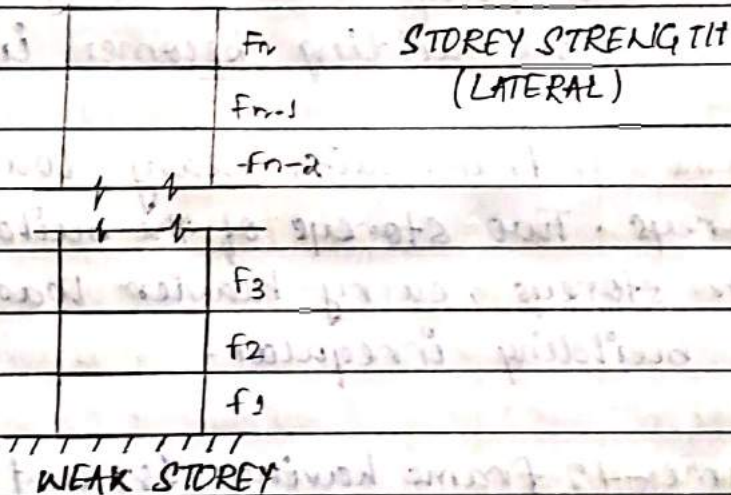 Fn STOREY STRENGTH
(LATERAL)
Fn-1
Fn-2
F3
F2
F1
WEAK STOREY